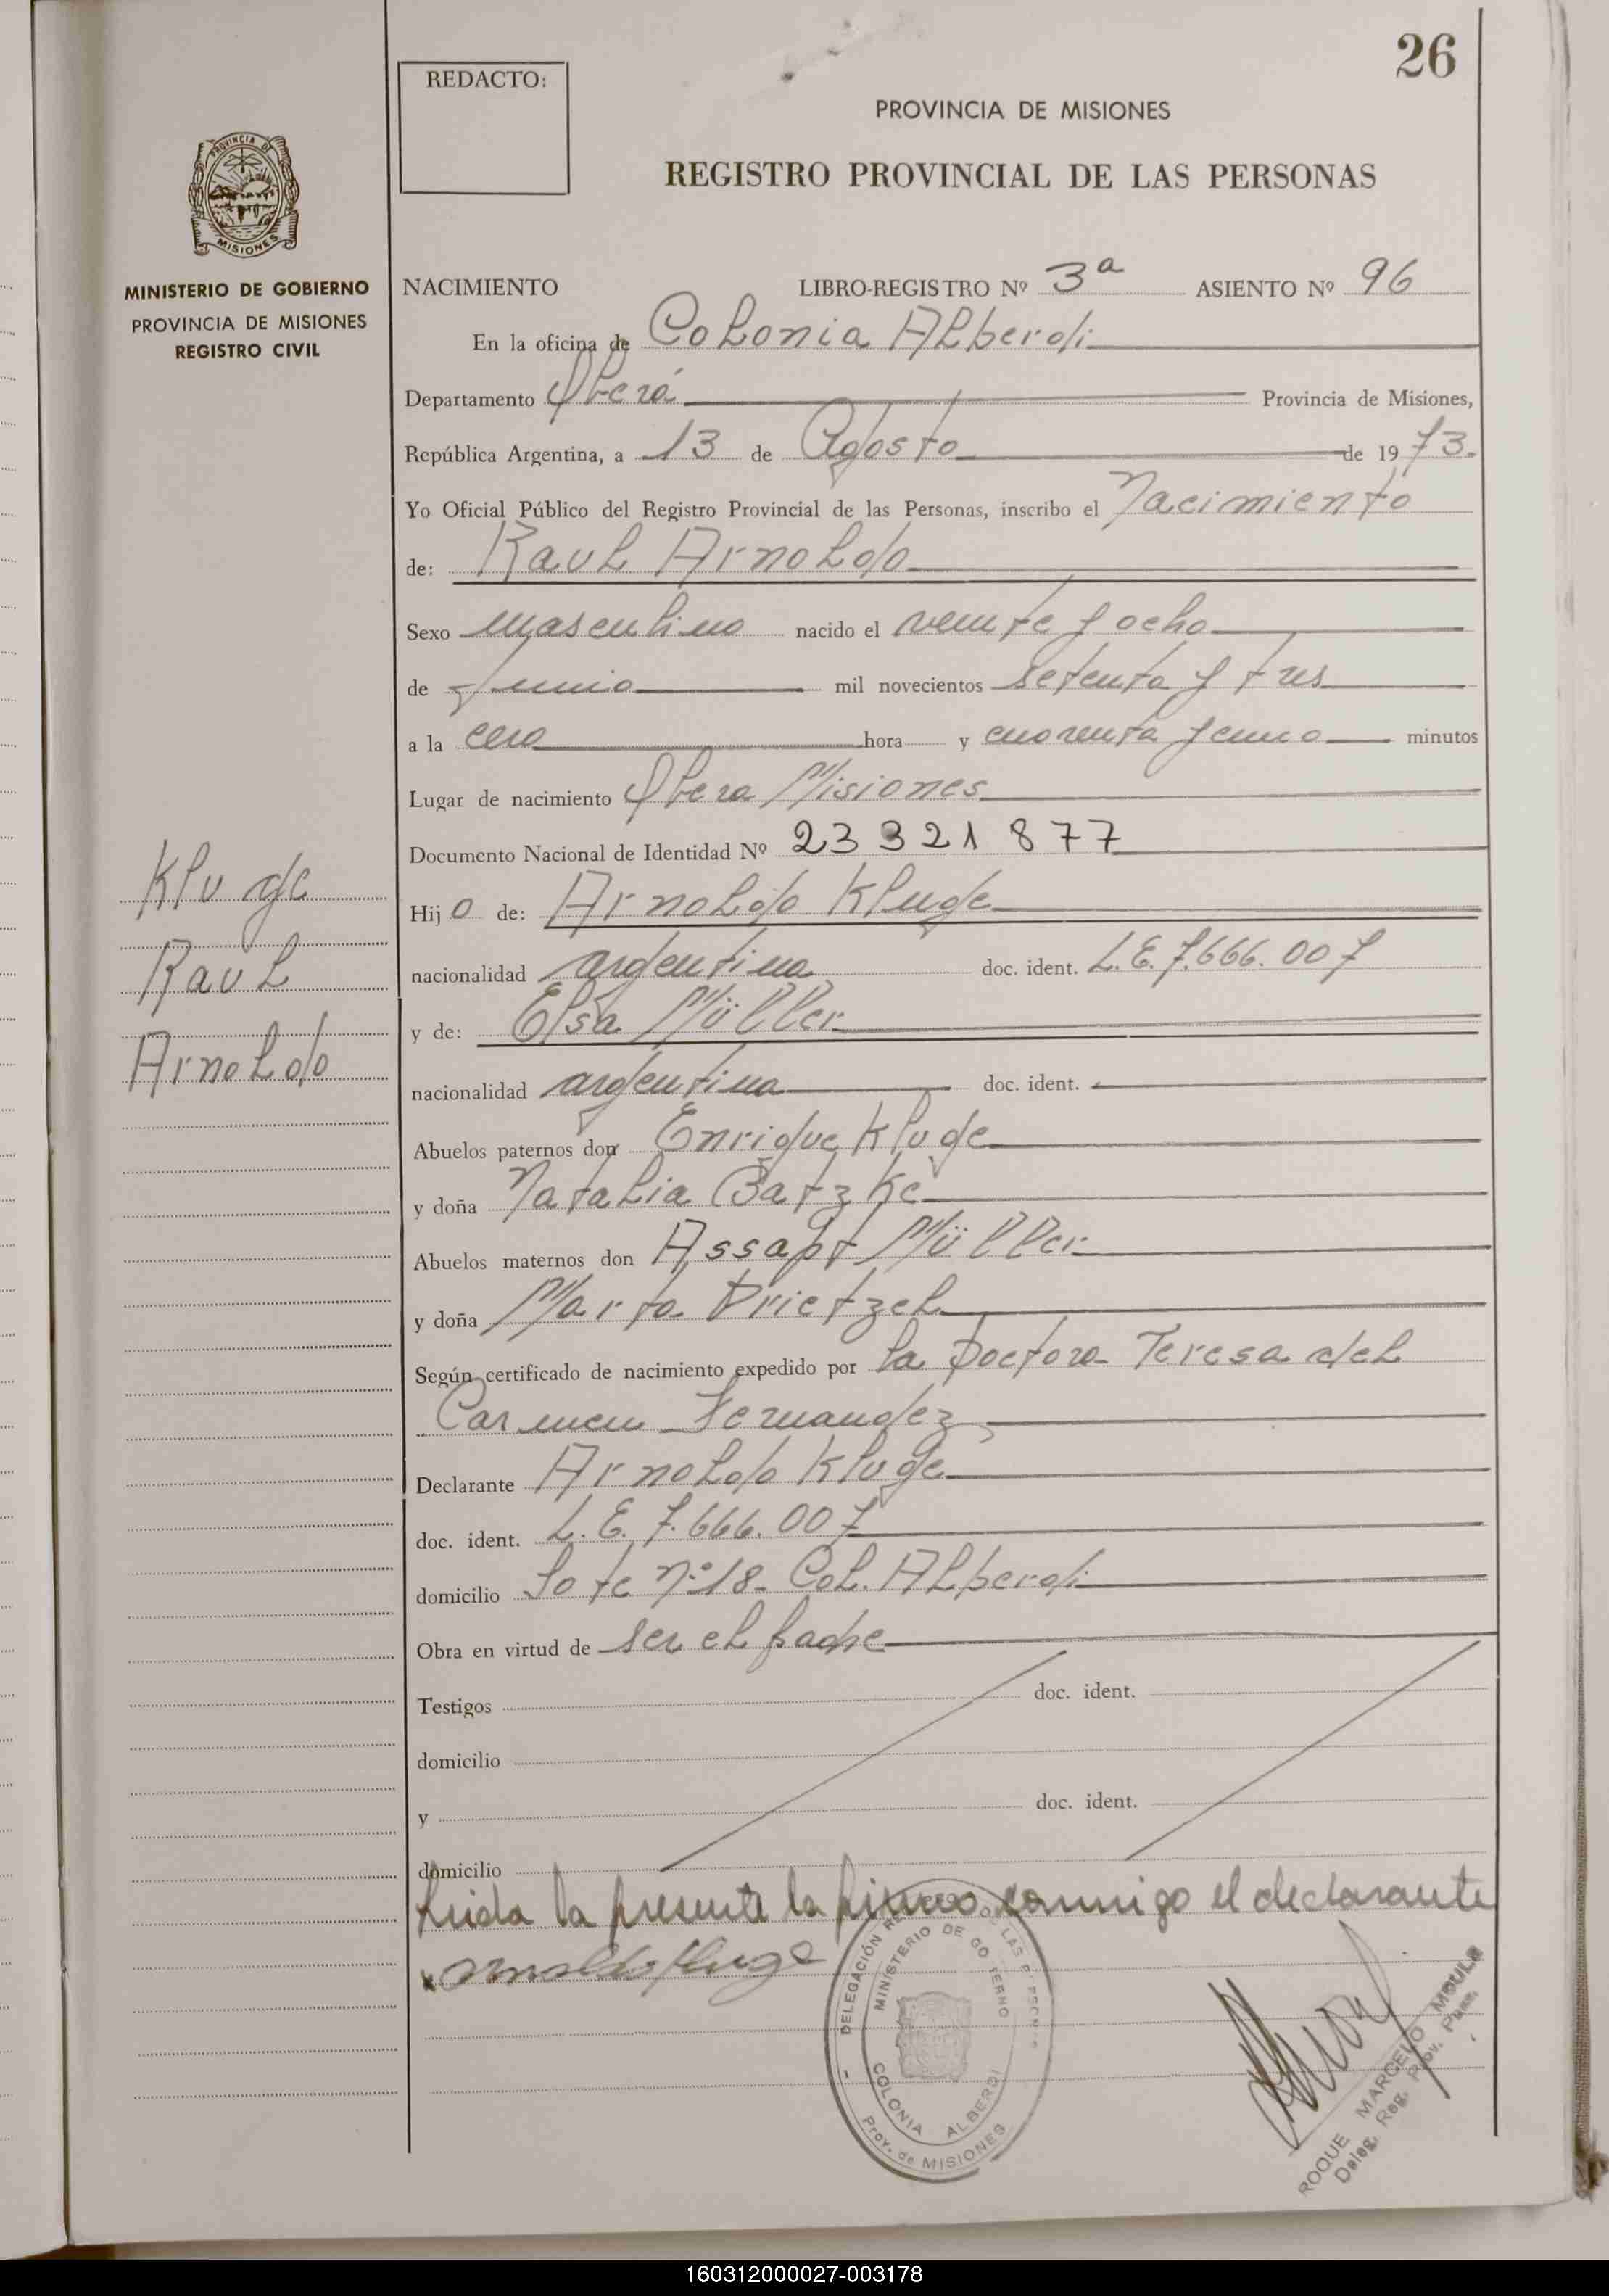 26
REDACTO:
PROVINCIA DE MISIONES
REGISTRO PROVINCIAL DE LAS PERSONAS
PROVINCIA DE
MISIONES
MINISTERIO DE GOBIERNO
PROVINCIA DE MISIONES
REGISTRO CIVIL
NACIMIENTO LIBRO-REGISTRO Nº 3ª ASIENTO Nº 96
En la oficina de Colonia ALberdi
Departamento Oberá Provincia de Misiones,
República Argentina, a 13 de Agosto de 1973.
Yo Oficial Público del Registro Provincial de las Personas, inscribo el Nacimiento
de: RauL ArnoLdo
Sexo masculino nacido el veinte y ocho
de Junio mil novecientos setenta y tres
a la cero hora y cuarenta y cinco minutos
Lugar de nacimiento Obera Misiones
Documento Nacional de Identidad Nº 23 321 877
Kluge
Hijo de: ArnoLdo Kluge
RauL
nacionalidad argentina doc. ident. L.E. 7.666.007
y de: Elsa Müller
ArnoLdo
nacionalidad argentina doc. ident.
Abuelos paternos don Enrique Kluge
y doña NataLia Batzke
Abuelos maternos don Assapt Müller
y doña Marta PrietzeL
Según certificado de nacimiento expedido por la Doctora Teresa deL
Carmen Fernandez
Declarante ArnoLdo Kluge
doc. ident. L.E. 7.666.007
domicilio Lote Nº18- CoL. ALberdi
Obra en virtud de ser eL padre
Testigos doc. ident.
domicilio
y doc. ident.
domicilio
Leida la presente la firma conmigo el declarante
Arnoldo Kluge
DELEGACIÓN REG. DE LAS PERSONAS
MINISTERIO DE GOBIERNO
COLONIA ALBERDI
Prov. de MISIONES
ROQUE MARCELO MOULA
Deleg. Reg. Prov. Pnas.
160312000027-003178